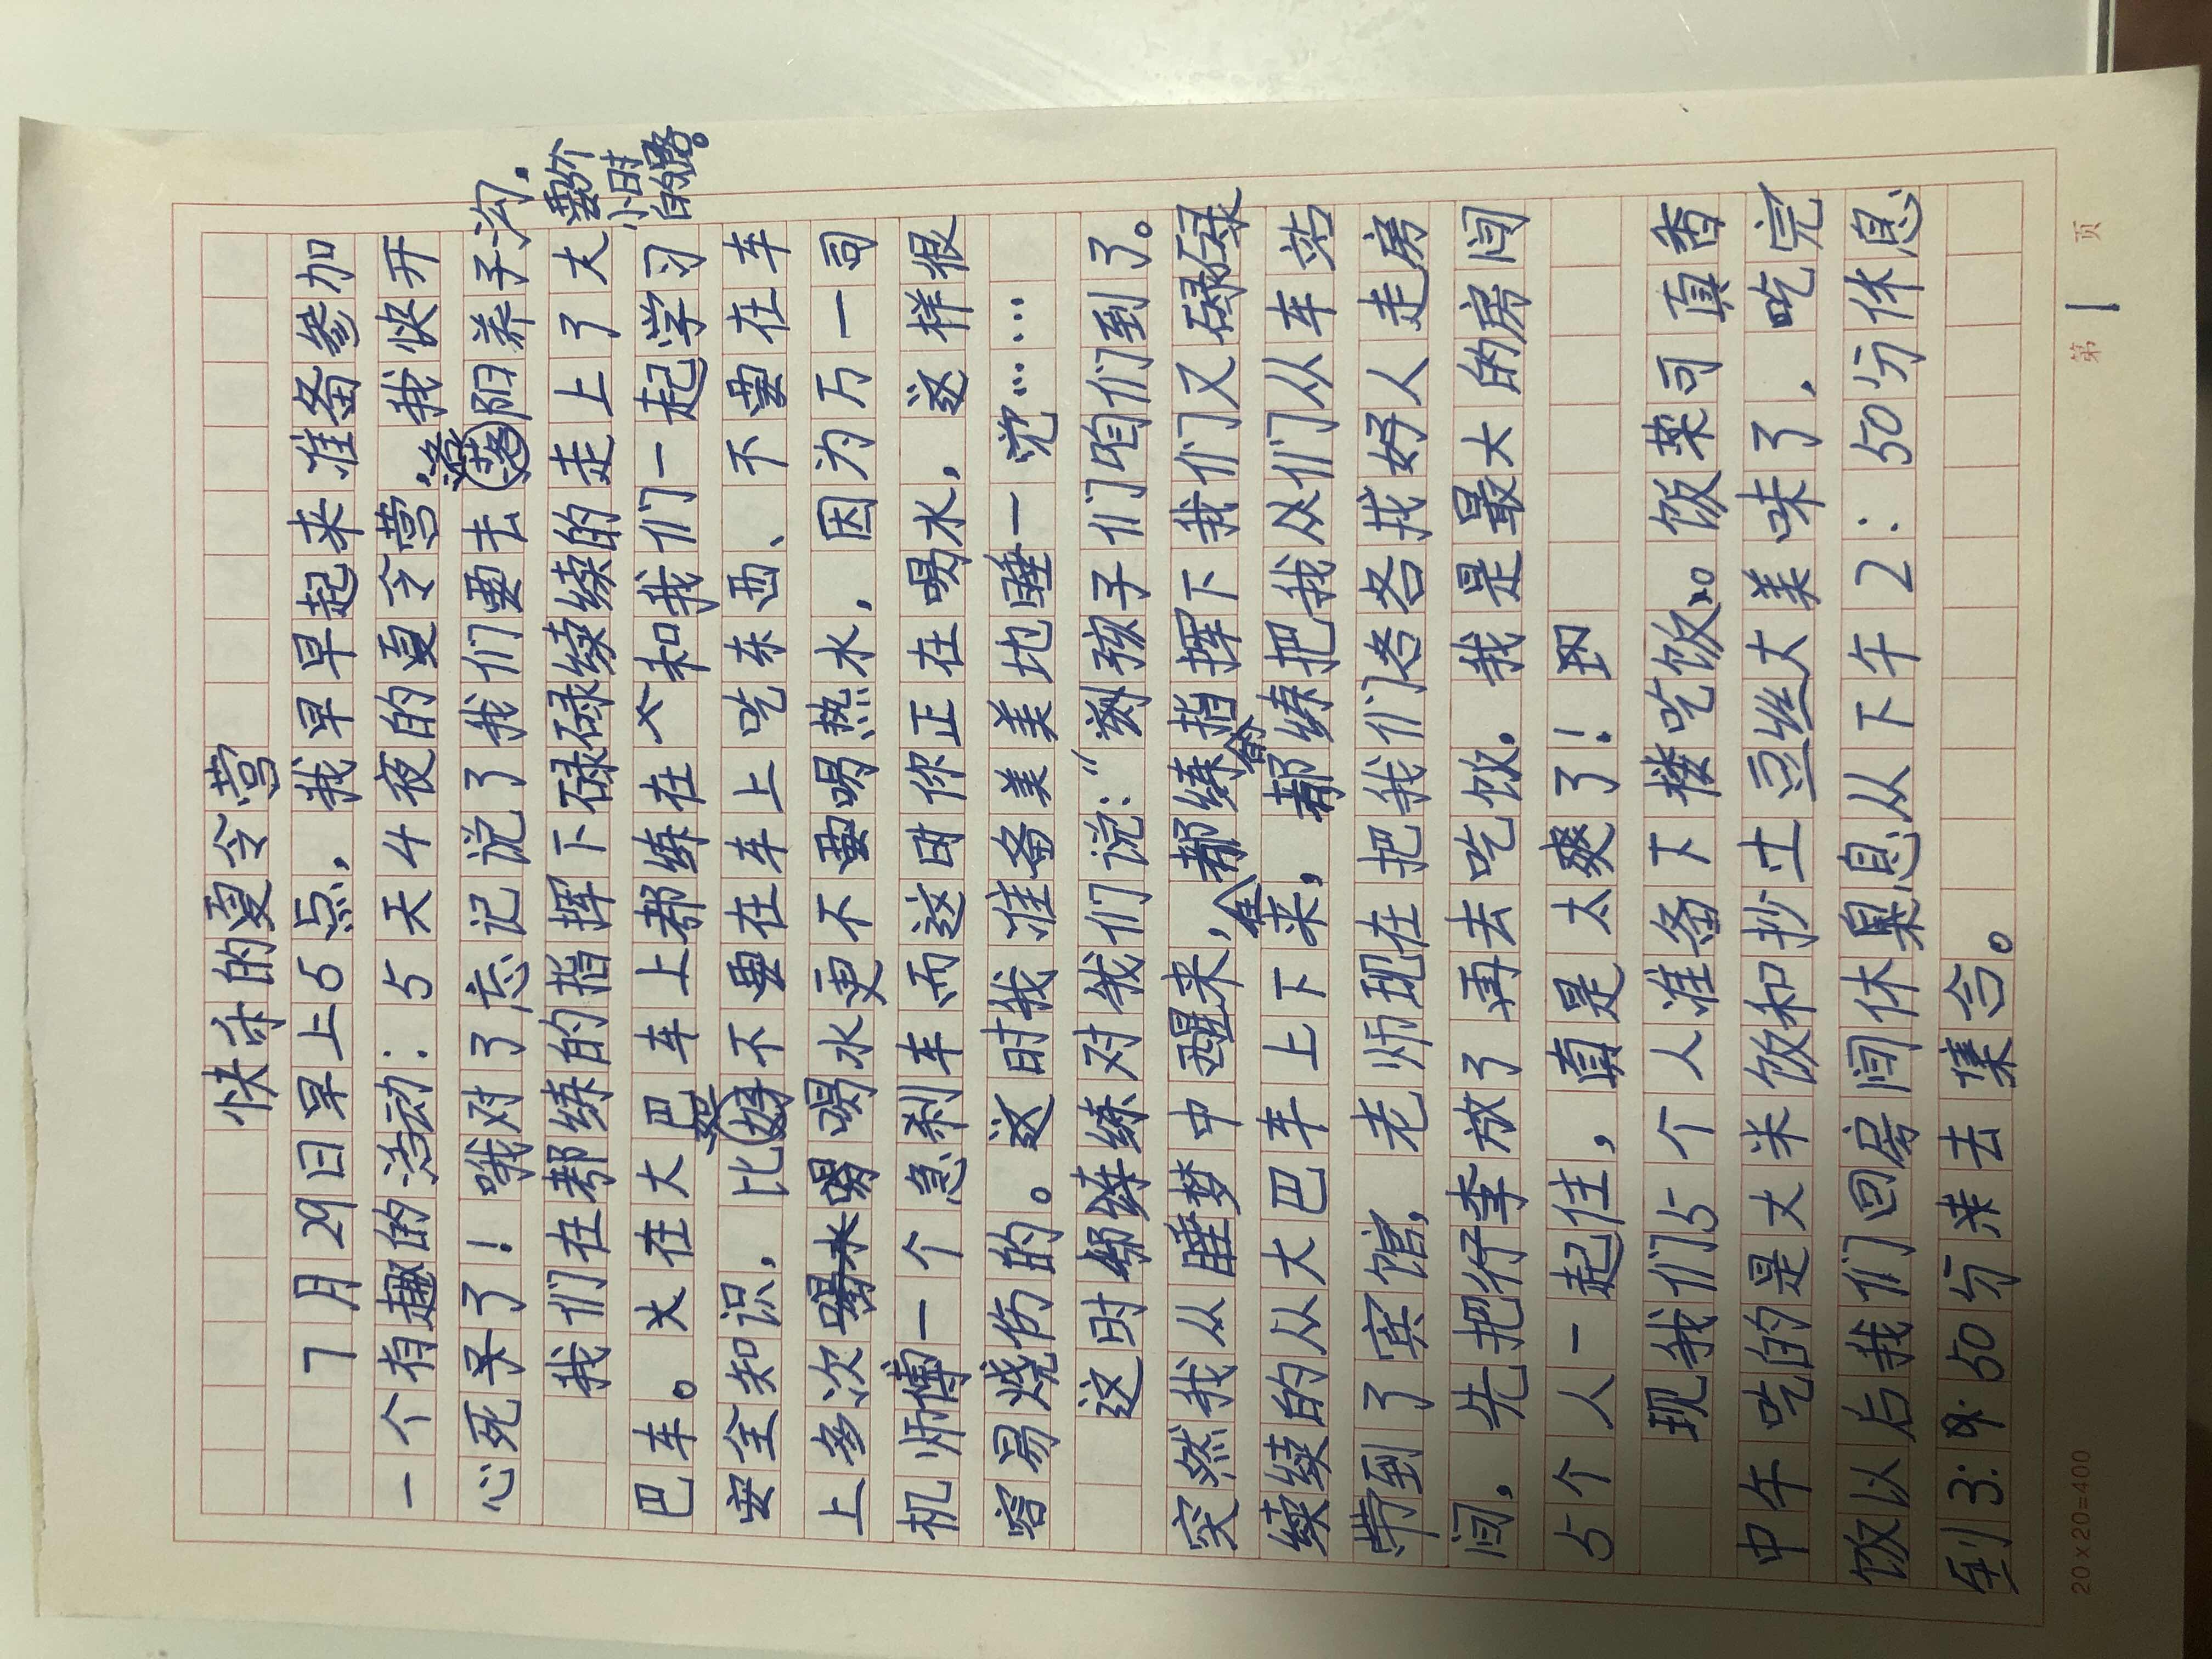 快乐的夏令营
7月29日早上6点，我早早起来准备参加
一个有趣的活动：5天4夜的夏令营，我快开
心死了！哦对了忘记说了我们要去阳养子沟，
要个小时的路。
我们在教练的指挥下碌碌续续的走上了大
巴车。大在大巴车上教练在个和我们一起学习
安全知识，比如不要在车上吃东西、不要在车
上多次喝水更不要喝热水，因为万一司
机师傅一个急刹车而这时你正在喝水，这样很
容易烧伤的。这时我准备美美地睡一觉……
这时教练对我们说：“孩子们咱们到了。
突然我从睡梦中醒来，教练指挥下我们又碌碌
续续的从大巴车上下来，教练把我从们从车站
带到了宾馆，老师现在把我们各各找好人走房
间，先把行李放了再去吃饭。我是最大的房间
5个人一起住，真是太爽了！
现我们5个人准备下楼吃饭。饭菜可真香
中午吃的是大米饭和抄土豆丝太美味了，吃完
饭以后我们回房间休息从下午2：50分休息
到3：50分来去集合。
20×20=400
第1页